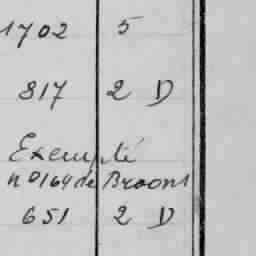 1702 5
817 2 D
Exempté
n° 164 de Broons
651 2 D